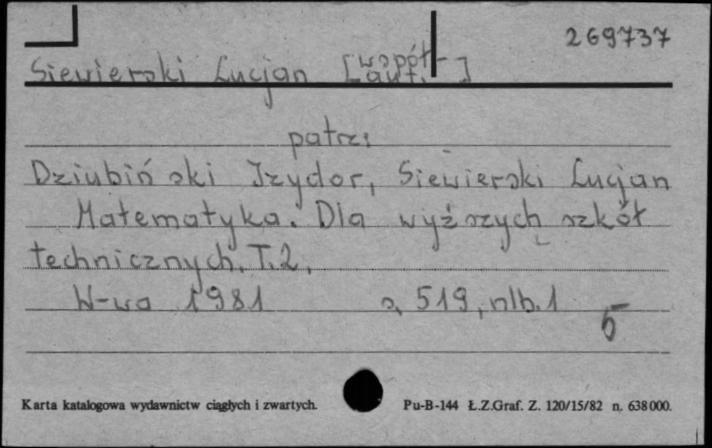 269737
Siewierski Lucjan [współ-
aut.]
patrz:
Dziubiński Izydor, Siewierski Lucjan
Matematyka. Dla wyższych szkół
technicznych. T.2.
W-wa 1981 s. 519, nlb. 1
5
Karta katalogowa wydawnictw ciągłych i zwartych. Pu-B-144 Ł.Z.Graf. Z. 120/15/82 n. 638000.